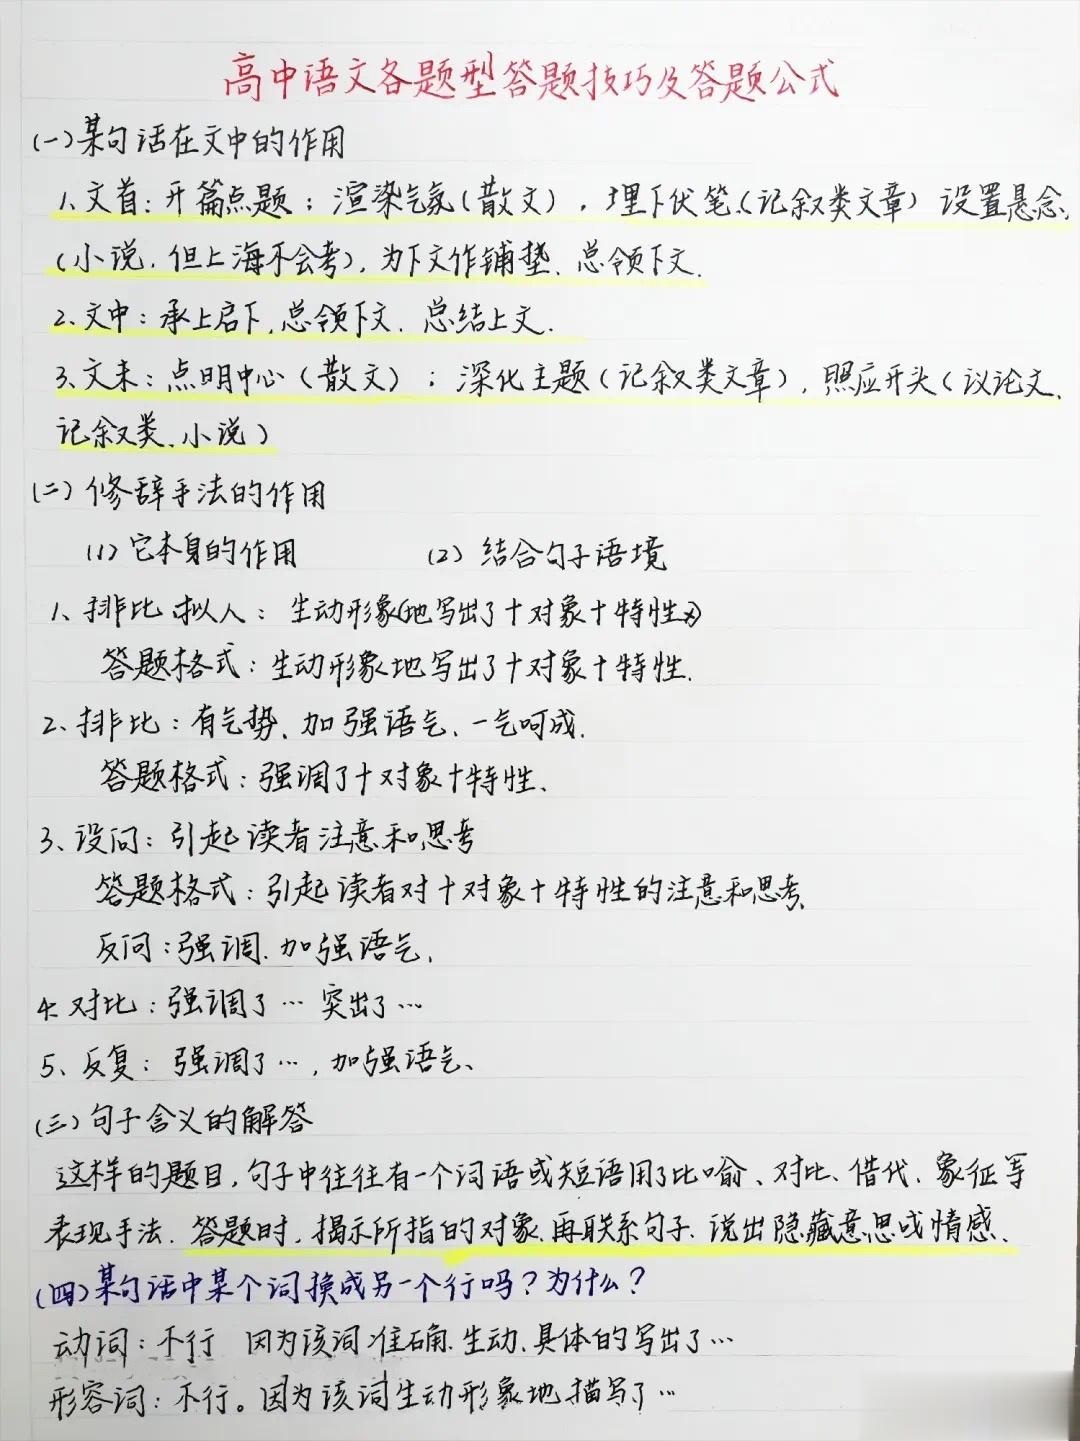 高中语文各题型答题技巧及答题公式
(一)某句话在文中的作用
1、文首：开篇点题；渲染气氛(散文)，埋下伏笔(记叙类文章) 设置悬念、
(小说，但上海不会考)，为下文作铺垫、总领下文．
2、文中：承上启下，总领下文．总结上文．
3、文末：点明中心(散文)；深化主题(记叙类文章)，照应开头(议论文、
记叙类、小说)
(二)修辞手法的作用
(1)它本身的作用 (2)结合句子语境
1、排比 拟人：生动形象地写出了＋对象＋特性
答题格式：生动形象地写出了＋对象＋特性．
2、排比：有气势、加强语气、一气呵成．
答题格式：强调了＋对象＋特性、
3、设问：引起读者注意和思考
答题格式：引起读者对＋对象＋特性的注意和思考、
反问：强调．加强语气，
4、对比：强调了… 突出了…
5、反复：强调了…，加强语气、
(三)句子含义的解答
这样的题目，句子中往往有一个词语或短语用了比喻、对比、借代、象征等
表现手法．答题时，揭示所指的对象，再联系句子．说出隐藏意思或情感．
(四)某句话中某个词换成另一个行吗？为什么？
动词：不行 因为该词准确．生动．具体的写出了…
形容词：不行。因为该词生动形象地描写了…